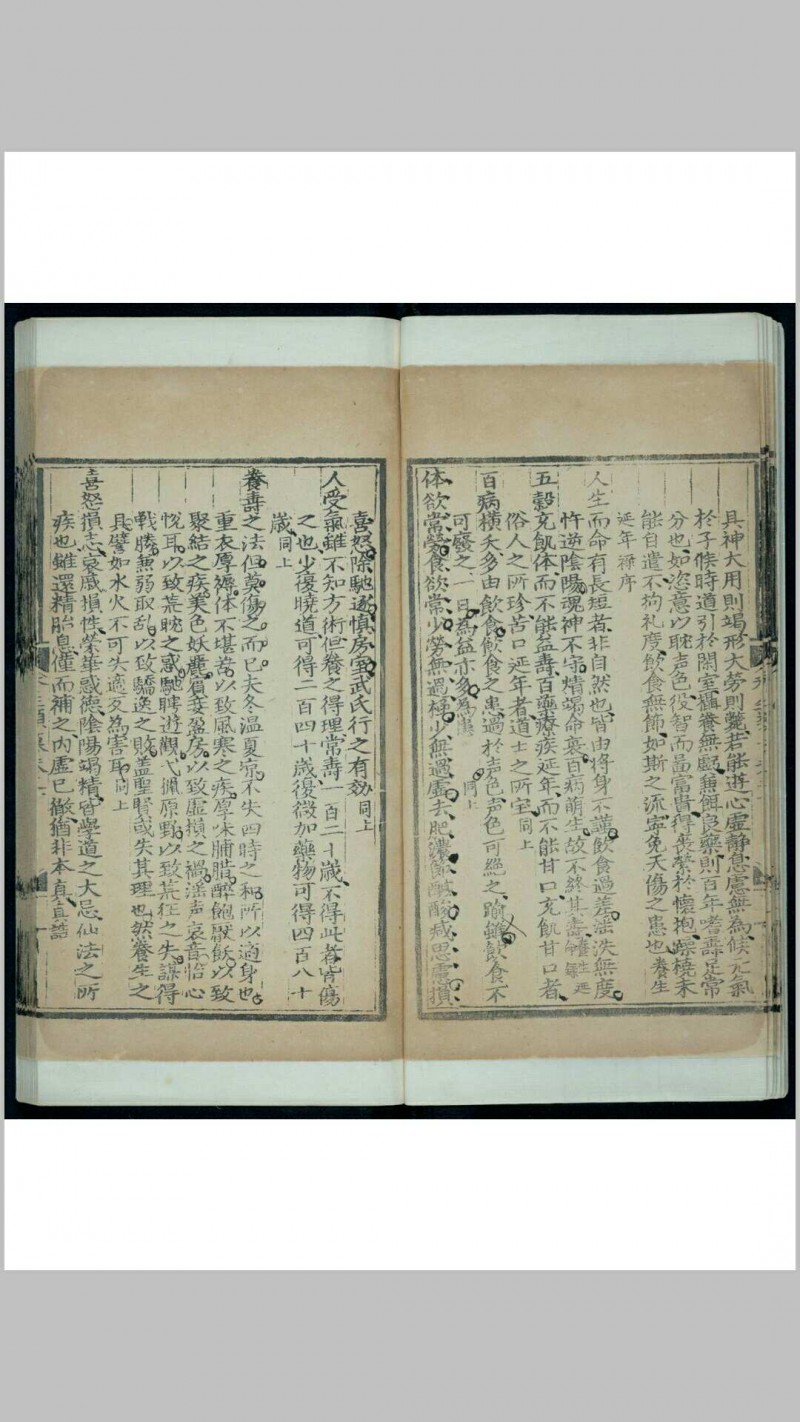 具神大用則竭形大勞則斃若能遊心虛静息慮無為候元氣
於子後時道引於閑室攝養無虧兼餌良藥則百年耆壽是常
分也如恣意以耽声色役智而啚富貴得丧縈於懷抱躁撓未
能自遣不拘礼度飲食無節如斯之流寧免夭傷之患也養生
延年禄序
人生而命有長短者非自然也皆由将身不謹飲食過差滛泆無度
忤逆陰陽魂神不守精竭命衰百病萌生故不終其壽命養生延
五穀充飢体而不能益壽百藥療疾延年而不能甘口充飢甘口者
俗人之所珍苦口延年者道士之所宝同上
百病横夭多由飲食飲食之患過於声色声色可絶之踰歳飲食不
可廢之一日為益亦多為患同上
体欲常勞食欲常少勞無過極少無過虛去肥濃節鹹酸减思慮損
喜怒除馳逐慎房室武氏行之有効同上
人受氣雖不知方術但養之得理常壽一百二十歳不得此者皆傷
之也少復曉道可得二百四十歳復微加藥物可得四百八十
歳同上
養壽之法但莫傷之而已夫冬温夏凉不失四時之和所以適身也
重衣厚褥体不堪苦以致風寒之疾厚味脯腊醉飽厭飫以致
聚結之疾美色妖麗嬪妾盈房以致虛損之禍滛声哀音怡心
悅耳以致荒耽之惑馳騁遊觀弋獵原野以致荒狂之失謀得
戰勝兼弱取乱以致驕逸之敗盖聖賢或失其理也然養生之
具譬如水火不可失適反為害耳同上
喜怒損志哀慼損性榮華惑德陰陽竭精皆學道之大忌仙法之所
疾也雖還精胎息僅而補之内虛已徹猶非本真真誥